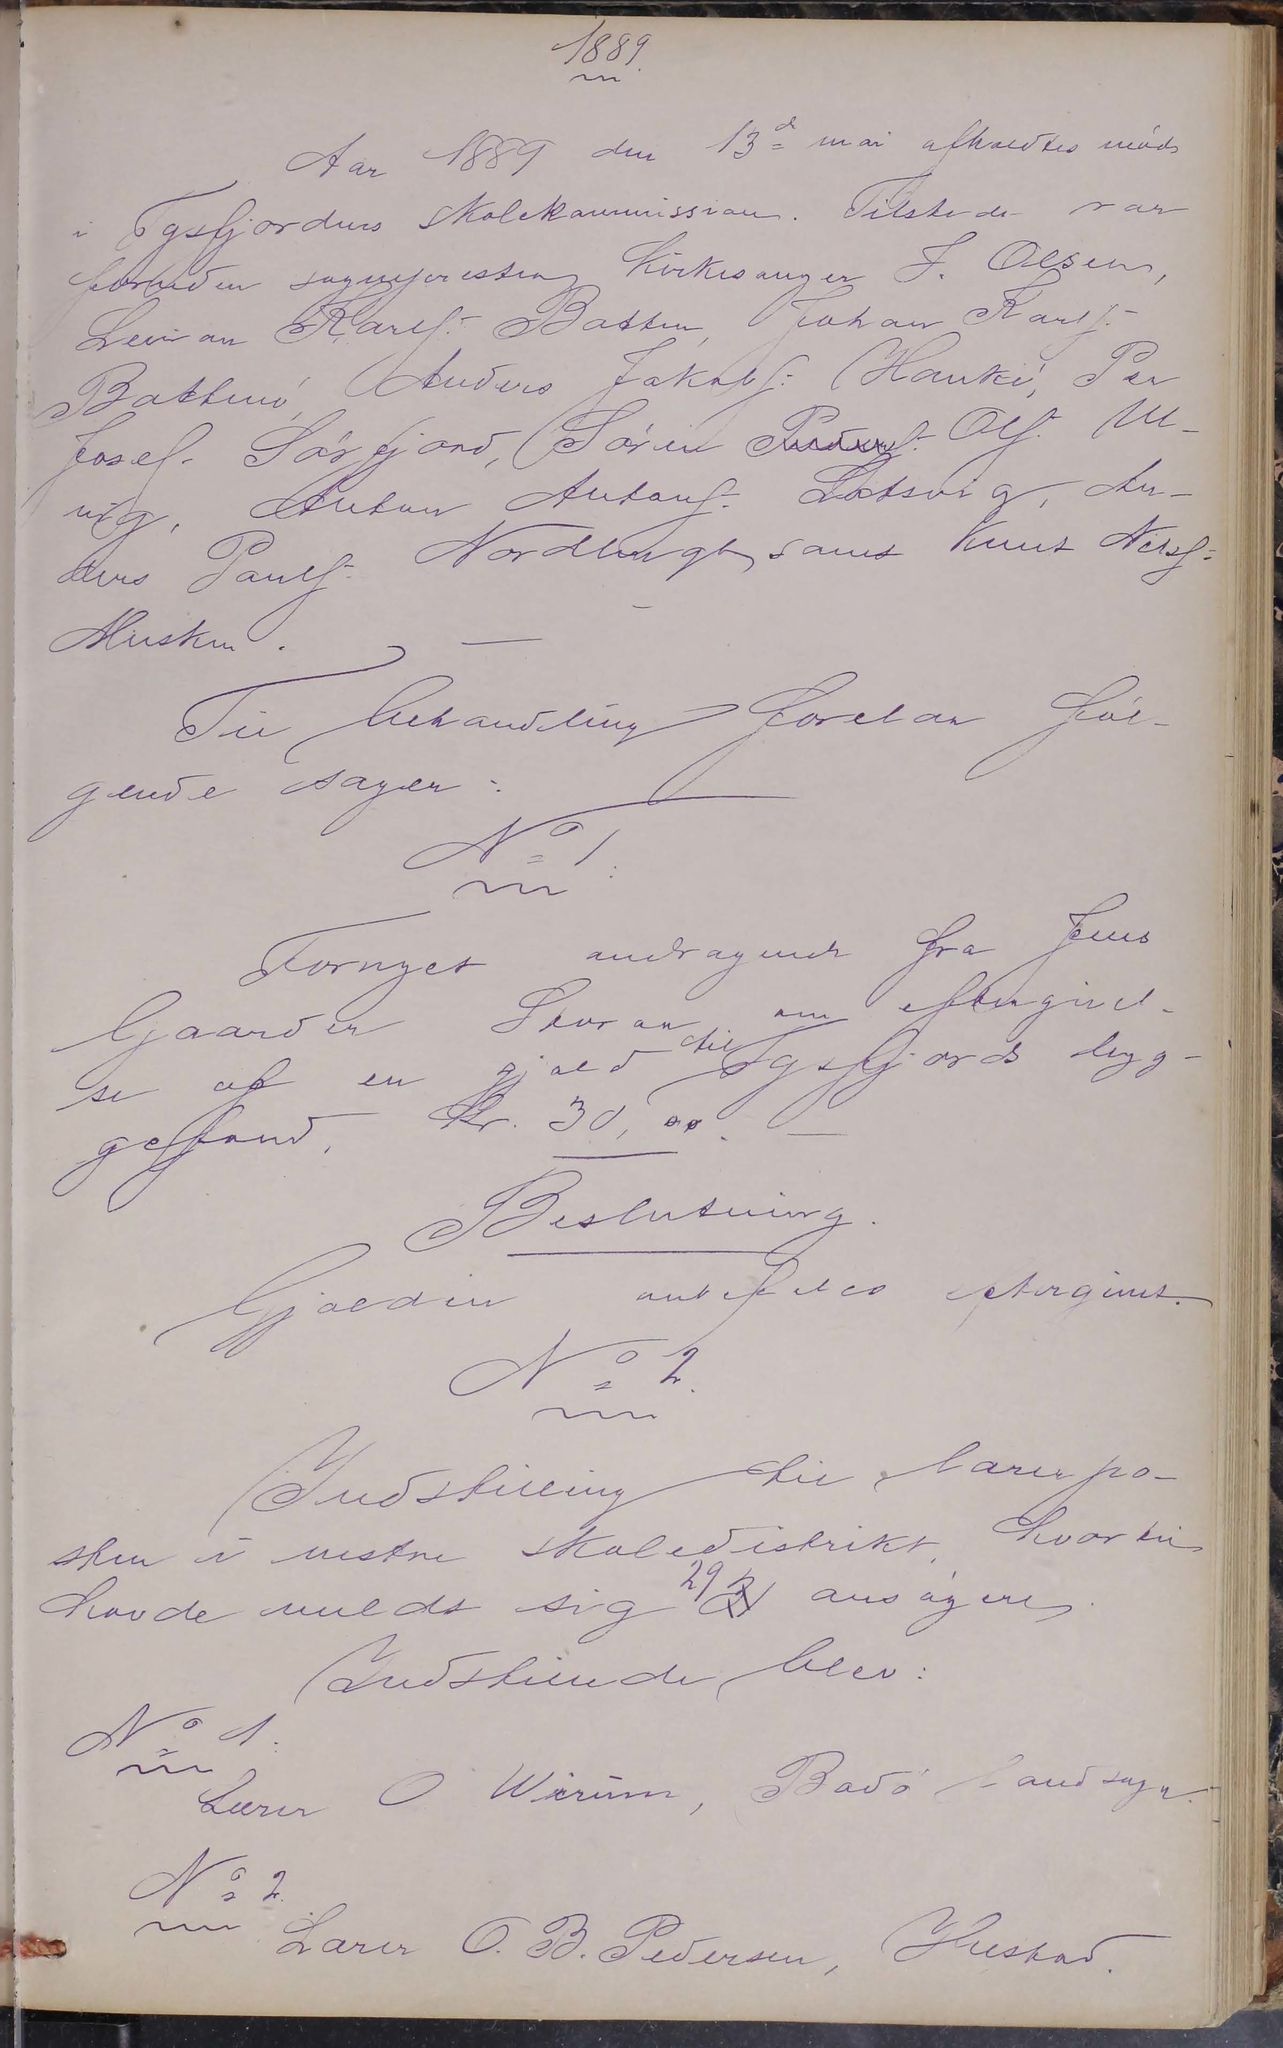 1889.
Aar 1889 den 13d mai afholdtes möde
i Tysfjordens skolekommission. Tilstede var
foruden sognepresten kirkesanger J. Olsen,
Karlf: Botten, Johan Karlf:
Anders Jakobf: Hauki, Per
Josef. Sörfjord, Sören Olf.
Anton Antonf: Lötsvig, An-
ders Paulf: samt Knut Nilsf:
Musken.
Til behandling forelaa föl-
gende sager:
No 1:
Fornyet andragende fra Jens
Gaarder Storaa om eftergivel-
se af en gjæld til Tysfjords byg-
gefond. Kr. 30,00.
Beslutning.
Gjælden anbefales eftergivet.
No 2.
Indstilling til lærerpo-
sten i vestre skoledistrikt, hvortil
havde meldt sig 29 ansögere.
Indstillende blev:
No 1:
Lærer O Wærum, Bodö landsogn.
No 2.
Lærer O. B. Pedersen, Hustad.